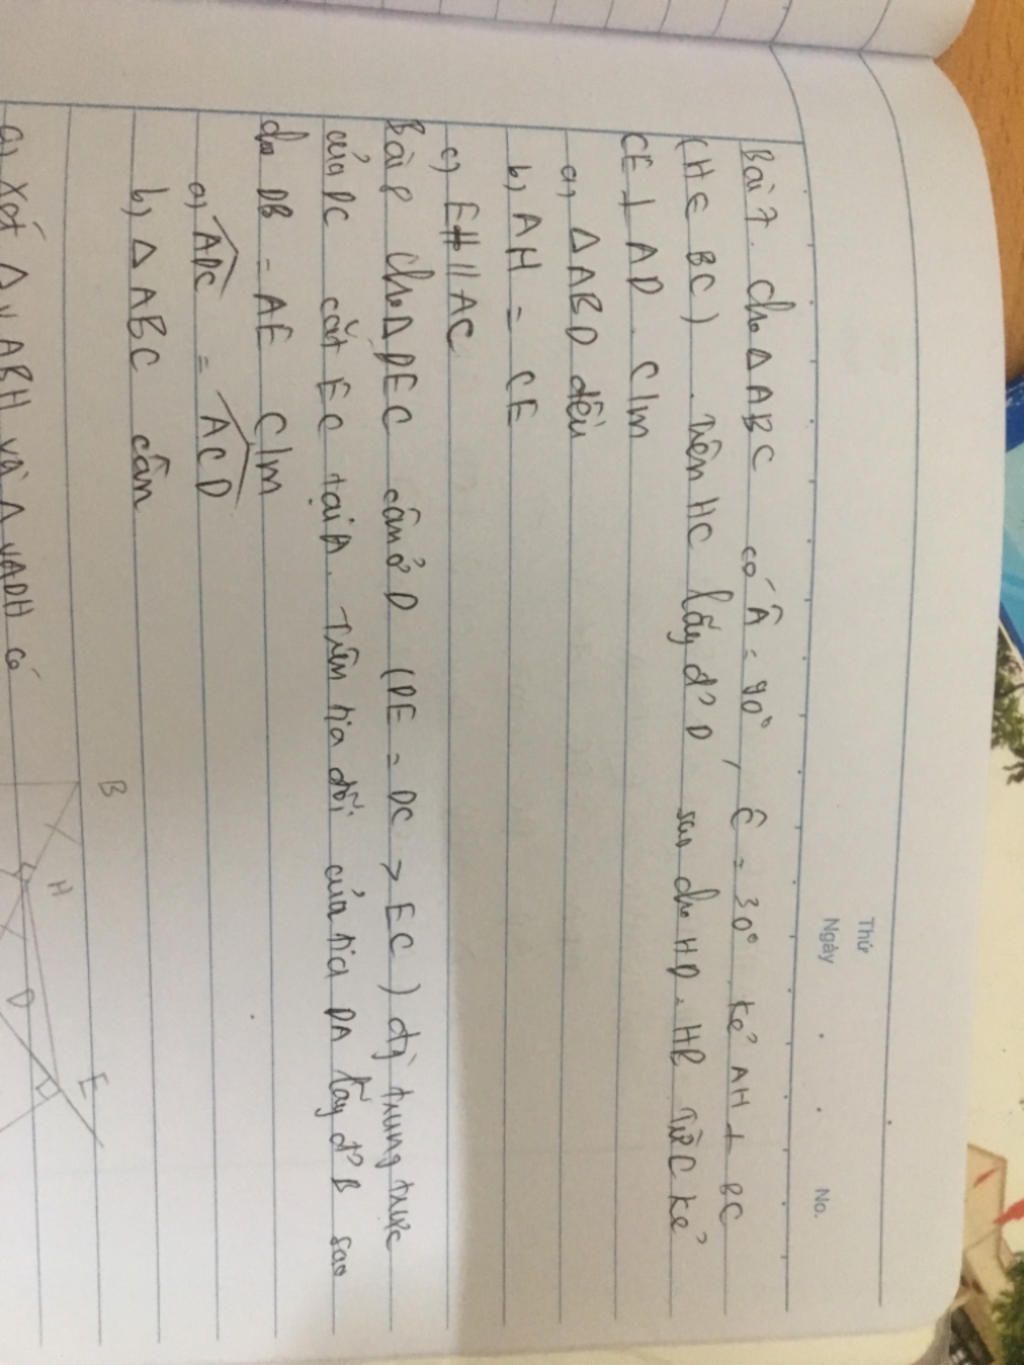 Thứ
Ngày
No.
Bài 7. cho Δ ABC có Â = 90°, Ĉ = 30° kẻ AH ⊥ BC
(H ∈ BC). Trên HC lấy đ' D sao cho HD = HB Từ C kẻ
CE ⊥ AD. C/m
a) Δ ABD đều
b) AH = CE
c) EH // AC
Bài 8 cho Δ DEC cân ở D (DE = DC > EC) đg trung trực
của DC cắt EC tại A. Trên tia đối của tia DA lấy đ' B sao
cho DB = AE C/m
a) ADC = ACD
b) Δ ABC cân
a) Xét Δ v ABH và Δ vADH có
B
H
D
E